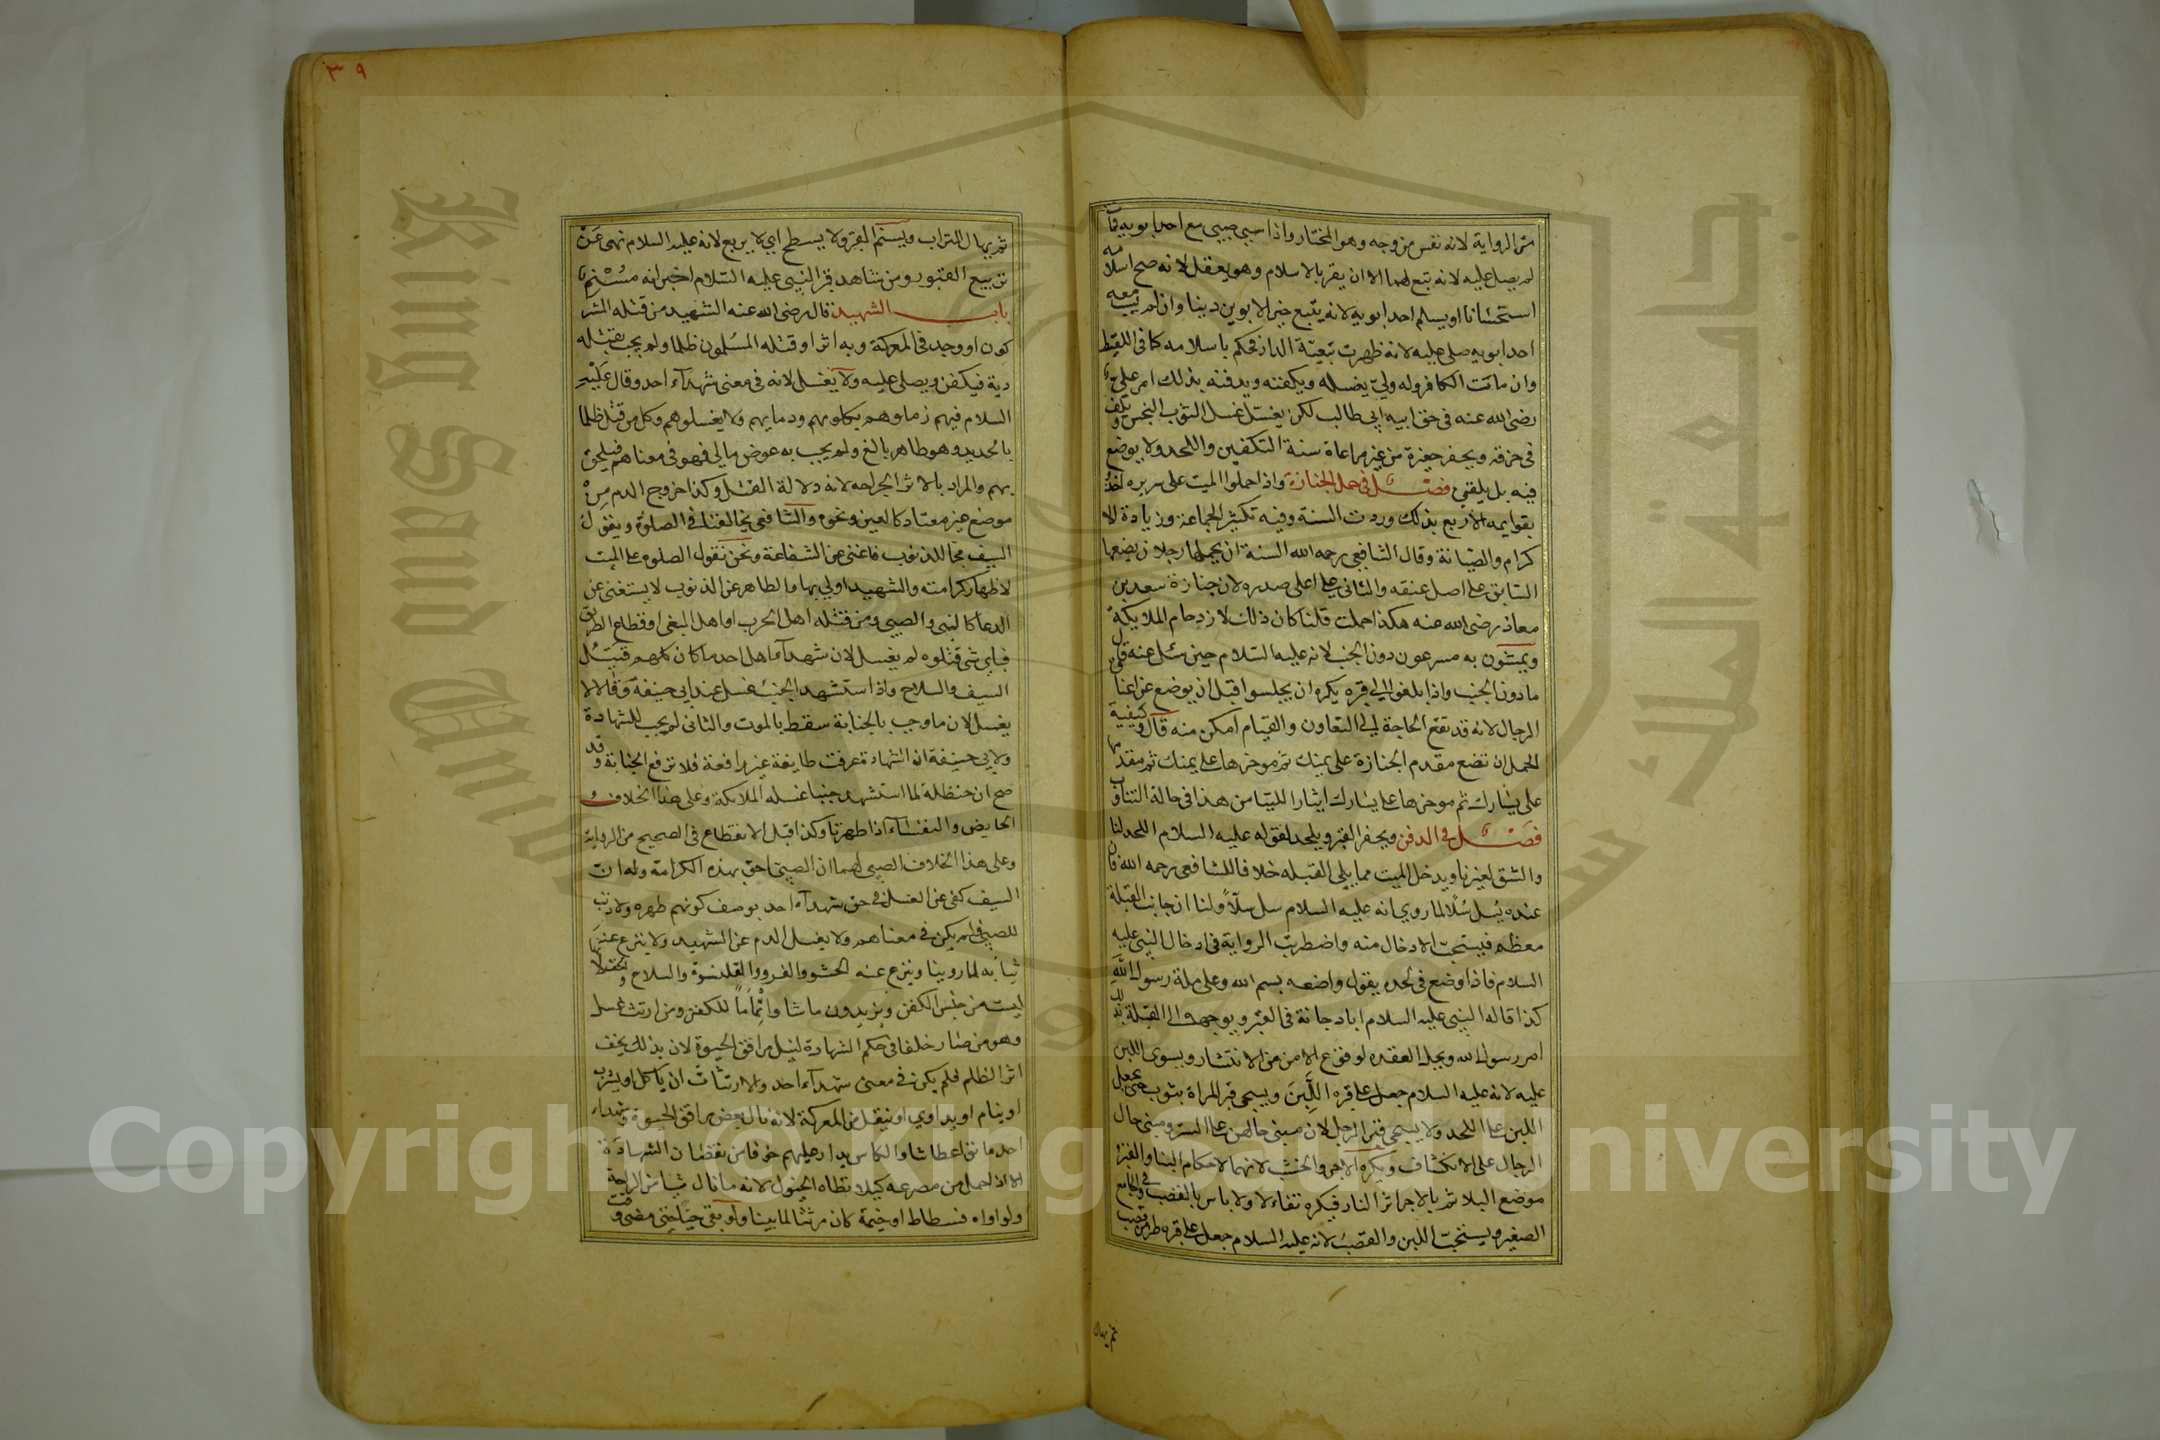 من الرواية لانه نفس من وجه وهو المختار واذا سبى صبى مع احد ابويه فمات
لم يصل عليه لانه تبع لهما الا ان يقر بالاسلام وهو يعقل لانه صح اسلامه
استحسانا او يسلم احد ابويه لانه يتبع خير الابوين دينا وان لم يسب معه
احد ابويه صلى عليه لانه ظهرت تبعية الدار فحكم باسلامه كما فى اللقيط
وان مات الكافر وله ولي يغسله ويكفنه ويدفنه بذلك امر علي
رضى الله عنه فى حق ابيه ابي طالب لكن يغسل غسل الثوب النجس ويلف
فى خرقة ويحفر حفيرة من غير مراعاة سنة التكفين واللحد ولا يوضع
فيه بل يلقى فصل فى حمل الجنازة واذا حملوا الميت على سريره اخذوا
بقوايمه الاربع بذلك وردت السنة وفيه تكثير الجماعة وزيادة الا
كرام والصيانة وقال الشافعي رحمه الله السنة ان يحملها رجلان يضعها
السابق على اصل عنقه والثانى على اعلى صدره لان جنازة سعد بن
معاذ رضى الله عنه هكذا حملت قلنا كان ذلك لازدحام الملايكة
ويمشون به مسرعون دون الخبب لانه عليه السلام حين سئل عنه قال
مادون الخبب واذا بلغوا الى قبره يكره ان يجلسوا قبل ان يوضع عن اعناق
الرجال لانه قد تقع الحاجة الى التعاون والقيام امكن منه قال وكيفية
الحمل ان تضع مقدم الجنازة على يمينك ثم موخرها على يمينك ثم مقدمها
على يسارك ثم موخرها على يسارك ايثارا للتيامن هذا فى حالة التناوب
فصل فى الدفن ويحفر القبر ويلحد لقوله عليه السلام اللحد لنا
والشق لغيرنا ويدخل الميت مما يلى القبله خلافا للشافعى رحمه الله فان
عنده يسل سلا لما روي انه عليه السلام سل سلاً ولنا ان جانب القبلة
معظم فيستحب الادخال منه واضطربت الرواية فى ادخال النبى عليه
السلام فاذا وضع فى لحده يقول واضعه بسم الله وعلى ملة رسول الله
كذا قاله النبى عليه السلام ابا دجانة فى القبر ويوجه الى القبلة بذلك
امر رسول الله ويحل العقده لوقوع الامن من الانتشار ويسوى اللبن
عليه لانه عليه السلام جعل على قبره اللَّبِنَ ويسجى قبر المراة بثوب حتى يجعل
اللبن على اللحد ولا يسجى قبر الرجل لان مبنى حالهن على الستر ومبنى حال
الرجال على الانكشاف ويكره الاجر والخشب لانهما لاحكام البنا والقبر
موضع البلا ثم بالاجر اثر النار فيكره تفاءلا ولا باس بالقصب وفى الجامع
الصغير ويستحب اللبن والقصب لانه عليه السلام جعل على قبره طن من قصب
ثم يهال
٣٩
ثم يهال التراب ويسنم القبر ولا يسطح اي لا يربع لانه عليه السلام نهى عن
تربيع القبور ومن شاهد قبر النبى عليه السلام اخبر انه مسنم
باب الشهيد قال رضى الله عنه الشهيد من قتله المشر
كون او وجد فى المعركة وبه اثر او قتله المسلمون ظلما ولم يجب بقتله
دية فيكفن ويصلى عليه ولا يغسل لانه فى معنى شهدآء احد وقال عليه
السلام فيهم زملوهم بكلومهم ودمايهم ولا يغسلوهم وكل من قتل ظلما
بالحديد وهو طاهر بالغ ولم يجب به عوض مالي فهو فى معناهم فيلحق
بهم والمراد بالاثر الجراحه لانه دلالة القتل وكذا خروج الدم من
موضع غير معتاد كالعين ونحوه والشافعي يخالفنا فى الصلوة ويقول
السيف محا للذنوب فاغنى عن الشفاعة ونحن نقول الصلوه على الميت
لاظهار كرامته والشهيد اولي بها والطاهر عن الذنوب لا يستغنى عن
الدعا كالنبى والصبى ومن قتله اهل الحرب او اهل البغى او قطاع الطريق
فباي شى قتلوه لم يغسل لان شهدآء اهل احد ما كان كلهم قتيل
السيف والسلاح واذا استشهد الجنب غسل عند ابي حنيفة وقالا لا
يغسل لان ما وجب بالجنابة سقط بالموت والثانى لم يجب للشهادة
ولابي حنيفة ان الشهادة عرفت مانعة غير رافعة فلا ترفع الجنابة وقد
صح ان حنظلة لما استشهد جنبا غسله الملايكة وعلى هذا الخلاف
الحايض والنفسآء اذا طهرتا وكذا قبل الانقطاع فى الصحيح من الرواية
وعلى هذا الخلاف الصبى لهما ان الصبى احق بهذه الكرامة وله ان
السيف كفى عن الغسل فى حق شهدآء احد بوصف كونهم طهره ولا ذنب
للصبى فلم يكن فى معناهم ولا يغسل الدم عن الشهيد ولا ينزع عنه
ثيابه لما روينا وينزع عنه الحشو والفرو والقلنسوة والسلاح والخف لانها
ليست من جنس الكفن ويزيدون ما شاوا اتماما للكفن ومن ارتث غسل
وهو من صار خلفا فى حكم الشهادة لنيل مرافق الحيوة لان بذلك يخف
اثر الظلم فلم يكن فى معنى شهدآء احد والارتثاث ان ياكل او يشرب
او ينام او يداوي او ينقل من المعركة لانه نال بعض مرافق الحيوة وشهداء
احد ماتوا عطاشا والكاس يدار عليهم خوفا من نقصان الشهادة
الا اذا حمل من مصرعه كيلا تطاه الخيول لانه ما نال شيا من الراحة
ولو اواه فسطاط او خيمة كان مرتثا لما بينا ولو بقى حيا حتى مضى وقت